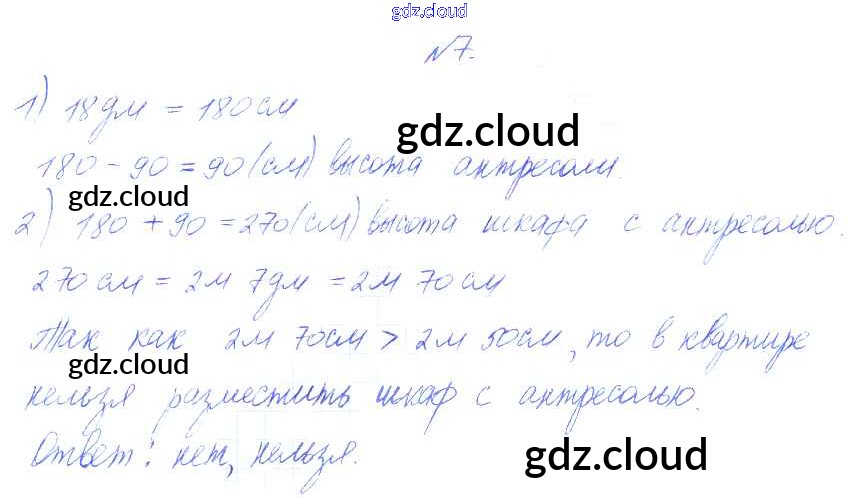 gdz.cloud
№7.
1) 18дм = 180см
gdz.cloud
180 - 90 = 90(см) высота антресоли.
gdz.cloud
2) 180 + 90 = 270(см) высота шкафа с антресолью.
270см = 2м 7дм = 2м 70см
Так как 2м 70см > 2м 50см, то в квартире
gdz.cloud
нельзя разместить шкаф с антресолью.
Ответ: нет, нельзя.
gdz.cloud